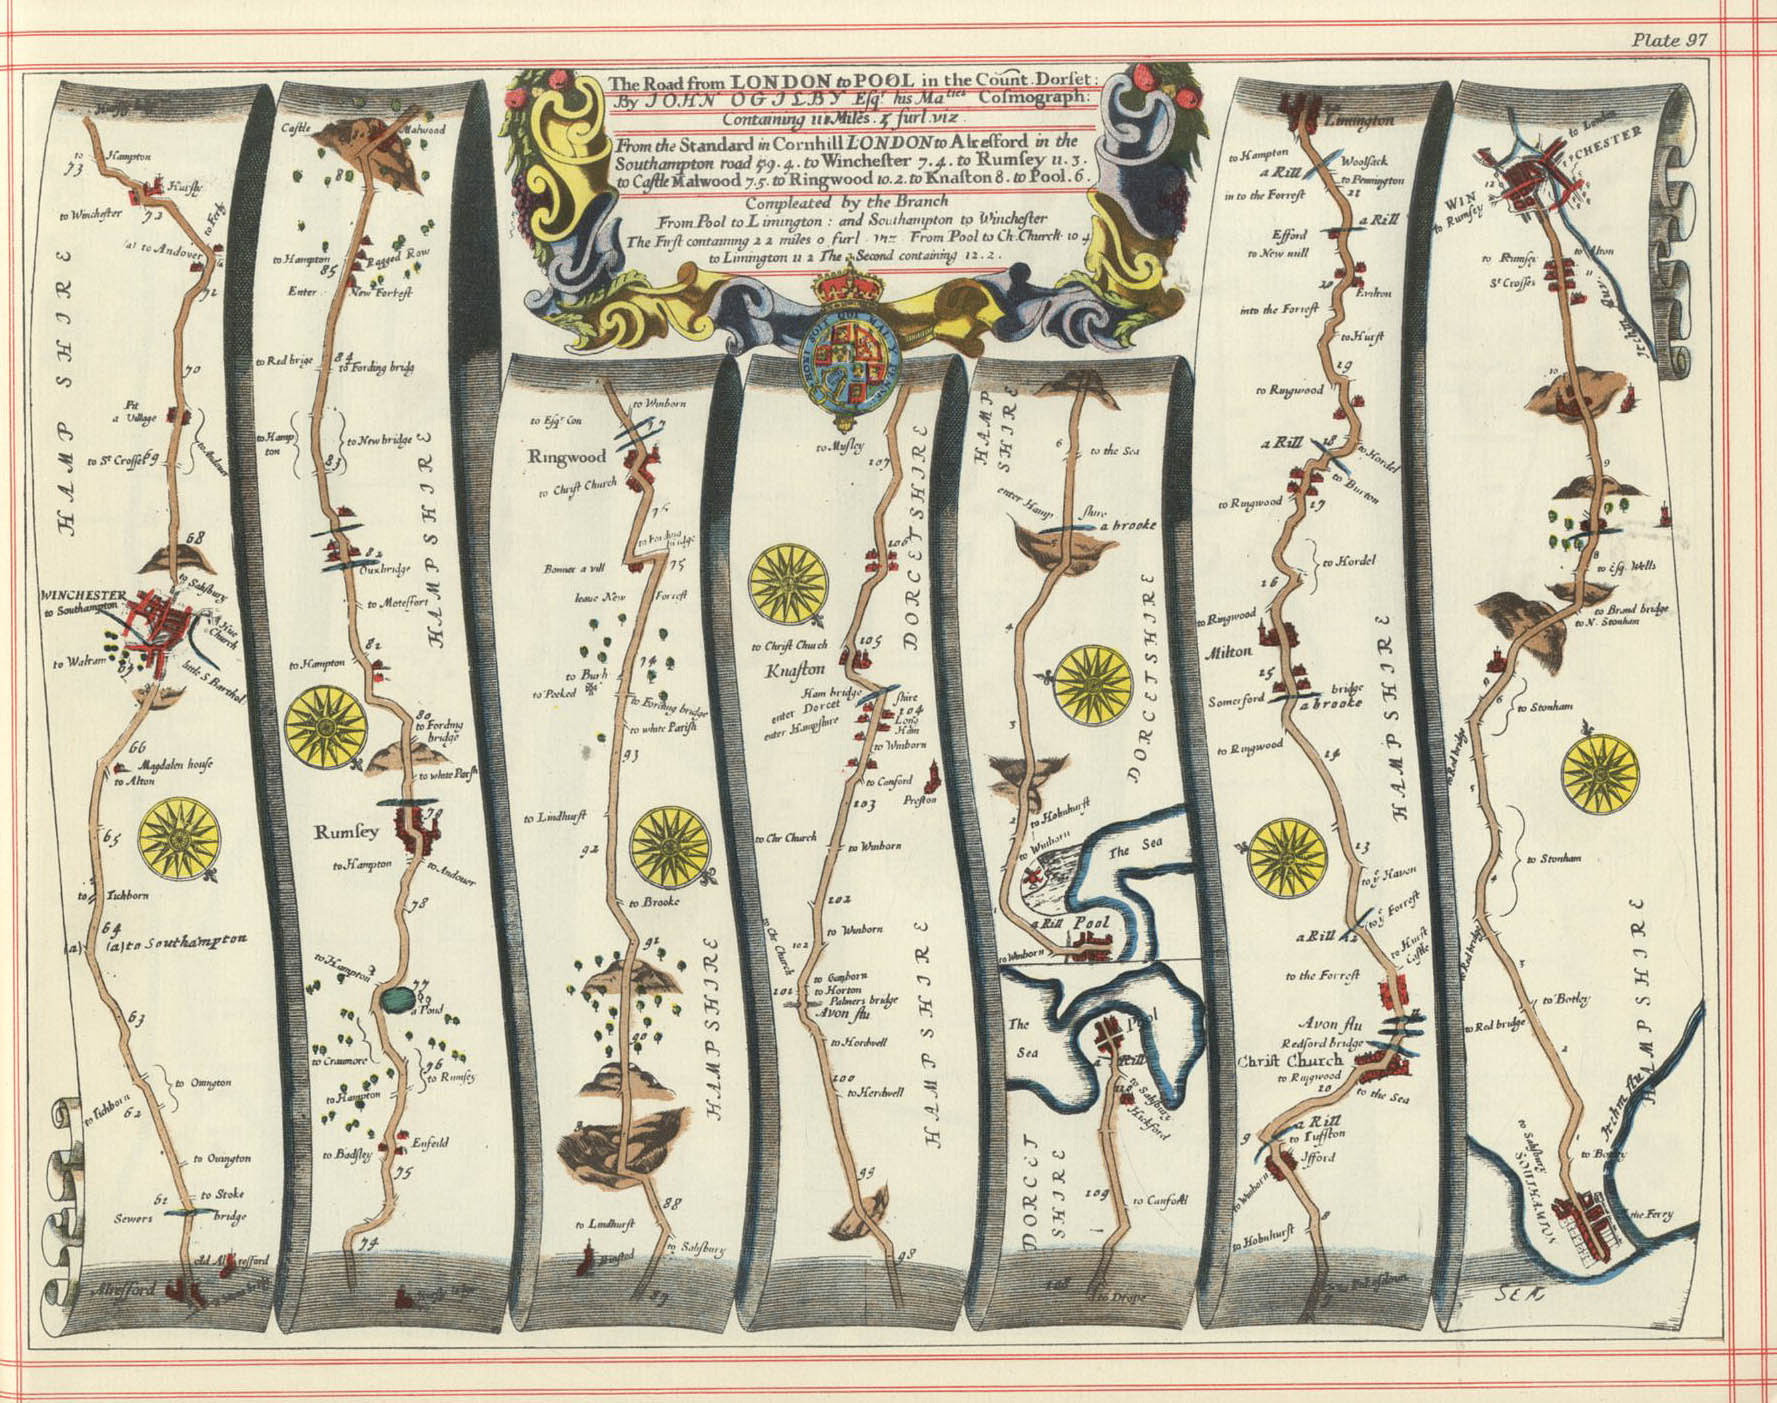 Plate 97
The Road from LONDON to POOL in the Count. Dorſet:
By JOHN OGILBY Eſqr. his Maties Coſmograph:
Containing 111 Miles. 5 furl. viz.
From the Standard in Cornhill LONDON to Alresford in the
Southampton road 59.4. to Wincheſter 7.4. to Rumſey 11.3.
to Caſtle Malwood 7.5. to Ringwood 10.2. to Knaſton 8. to Pool. 6.
Compleated by the Branch
From Pool to Limington: and Southampton to Wincheſter
The Firſt containing 22 miles 0 furl. viz. From Pool to Ch. Church 10 4
to Limington 11 2 The Second containing 12.2.
HONI SOIT QUI MAL Y PENSE
to Hampton
73
Hurſly
to Wincheſter
72
to Andover
71
HAMPSHIRE
70
Pit
a Village
to St Croſſe
69
to Andover
68
WINCHESTER
to Southampton
to Salsbury
Church
to Walram
67
little S Barthol
66
Magdalen houſe
to Alton
65
to Tichborn
64
(a)
(a) to Southampton
63
to Ovington
to Tichborn
62
to Ovington
61
to Stoke
Sewers bridge
old Alresford
Alresford
Caſtle
Malwood
to Hampton
85
Ragged Row
Enter
New Forreſt
to Red brige
84
to Fording bridg
to Hampton
to New bridge
83
HAMPSHIRE
82
Ouxbridge
to Moteffort
81
to Hampton
80
to Fording bridge
to white Pariſh
79
Rumſey
to Hampton
to Andover
78
to Hampton
77
a Pond
to Cranmore
76
to Rumſey
to Hampton
Enfeild
to Badſley
75
74
to Winborn
to Eſqr Con
Ringwood
to Chriſt Church
to Fording bridge
Bonner a vill
leave New Forreſt
to Burh
to Pooked
to Fording bridge
to white Pariſh
93
to Lindhurſt
92
to Brooke
91
HAMPSHIRE
90
88
to Lindhurſt
to Salsbury
Binſted
to Muſley
107
DORCETSHIRE
106
105
to Chriſt Church
Knaſton
Ham bridge
enter Dorcet ſhire
enter Hampſhire
104
Long Ham
to Winborn
to Canford
Preſton
103
to Chr Church
to Winborn
102
to Chr Church
to Winborn
102
to Horton
101
Palmers bridge
Avon flu
to Hordwell
100
to Herdwell
HAMPSHIRE
99
98
HAMPSHIRE
6
to the Sea
enter Hampſhire
a brooke
4
DORCETSHIRE
3
2
to Hobnhurſt
to Winborn
The Sea
a Rill
Pool
to Winborn
The Sea
Pool
a Rill
110
to Salsbury
Hickford
109
to Canford
DORCET SHIRE
108
Limington
to Hampton
a Rill
Woolſack
to Pennington
21
in to the Forreſt
a Rill
Efford
to New mill
20
Evilton
into the Forreſt
to Hurſt
19
to Ringwood
a Rill
18
to Hordel
to Burton
to Ringwood
17
to Hordel
16
to Ringwood
Milton
15
Somerford
bridge
a brooke
HAMPSHIRE
to Ringwood
14
13
to ye Haven
to ye Forreſt
a Rill
12
to Hurſt Caſtle
to the Forreſt
11
Avon flu
Redford bridge
Chriſt Church
to Ringwood
10
to the Sea
9
a Rill
to Tuffton
Ifford
to Winborn
8
to Hobnhurſt
to London
WINCHESTER
12
to Rumſey
to Alton
to Rumſey
St Croſſes
11
10
9
8
to Eſq. Wells
to Brand bridge
to N. Stonham
6
to Stonham
to Red bridg
5
to Stonham
4
to Red bridg
3
to Botley
to Red bridge
2
HAMPSHIRE
to Salsbury
SOUTHAMTON
the Ferry
SEA